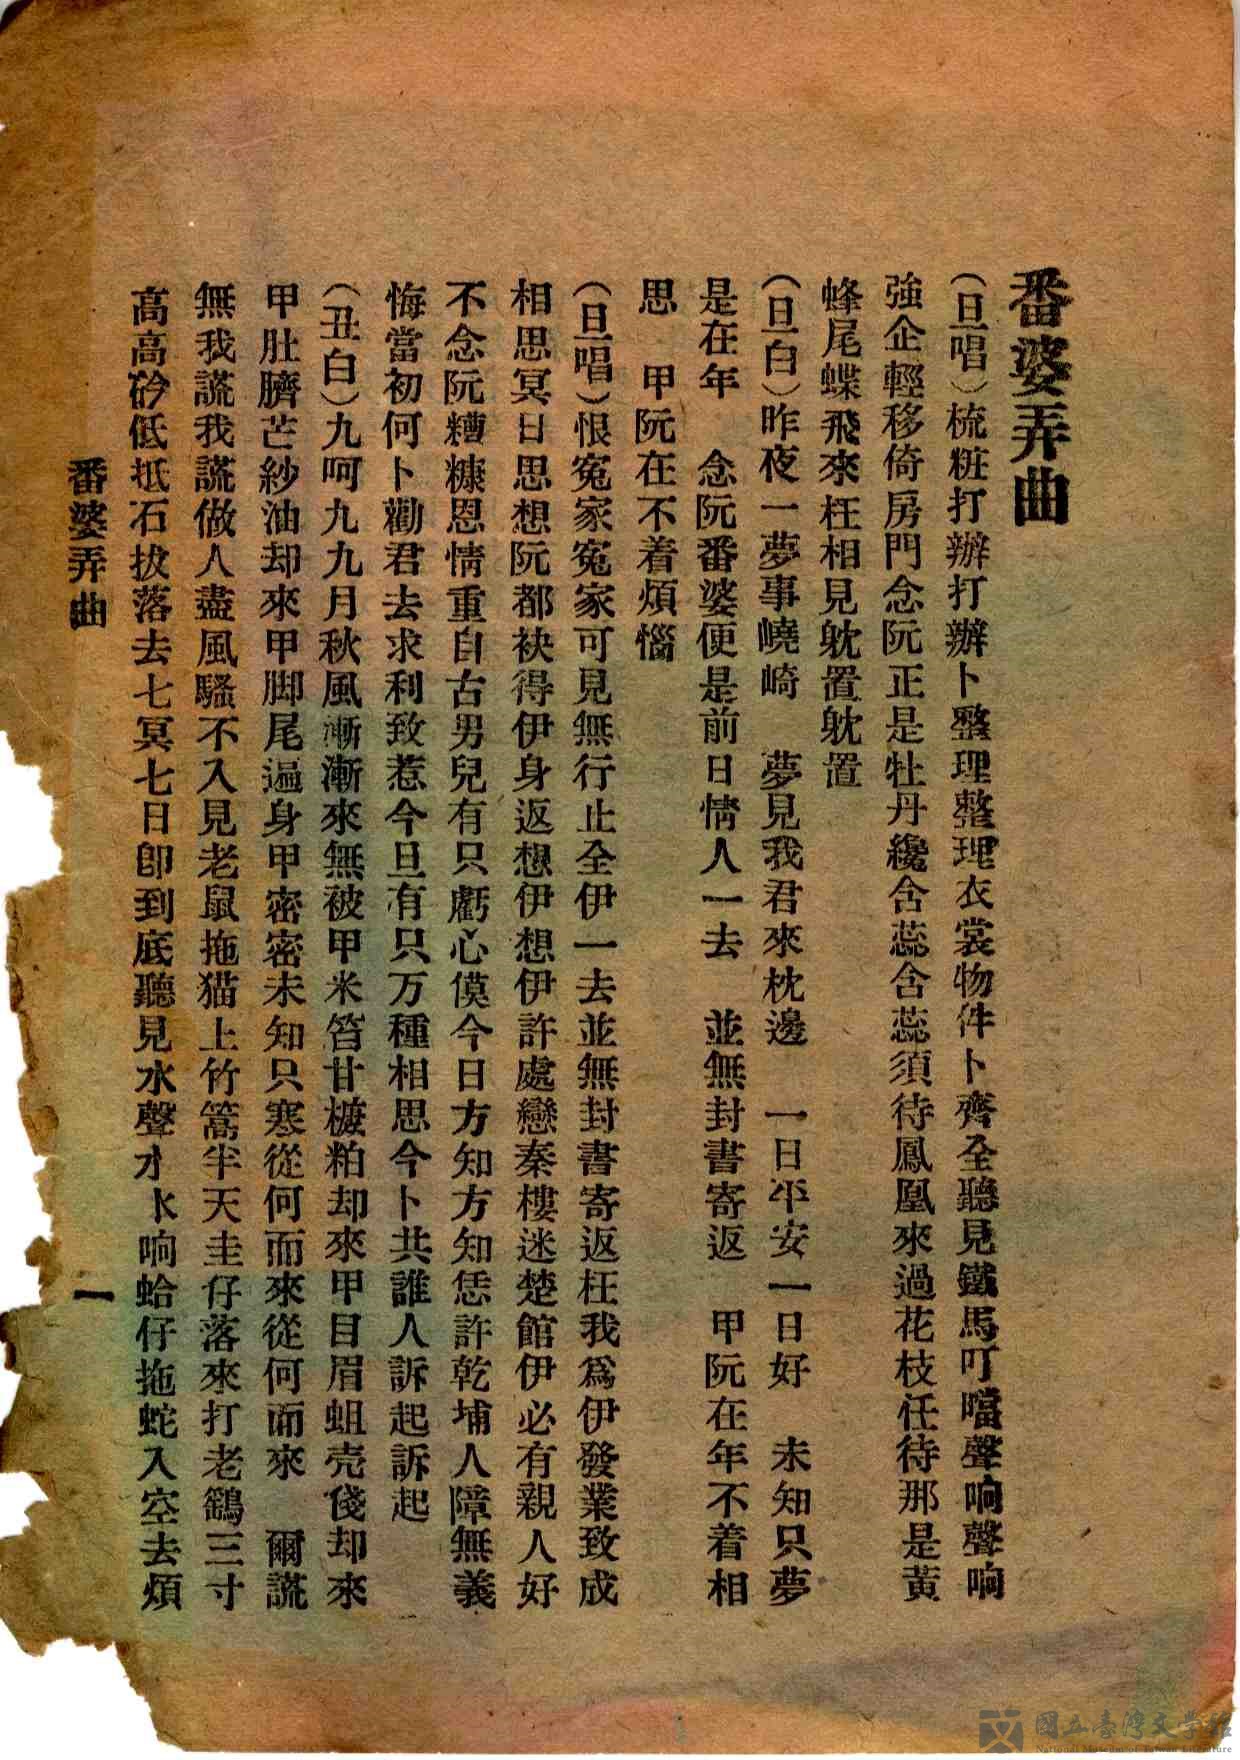 番婆弄曲
（旦唱）梳粧打辦打辦卜整理整理衣裳物件卜齊全聽見鐵馬叮噹聲响聲响
強企輕移倚房門念阮正是牡丹纔含蕊含蕊須待鳳凰來過花枝任待那是黃
蜂尾蝶飛來枉相見躭置躭置
（旦白）昨夜一夢事嶢崎　夢見我君來枕邊　一日平安一日好　未知只夢
是在年　念阮番婆便是前日情人一去　並無封書寄返　甲阮在年不着相
思　甲阮在不着煩惱
（旦唱）恨寃家寃家可見無行止全伊一去並無封書寄返枉我爲伊發業致成
相思冥日思想阮都袂得伊身返想伊想伊許處戀秦樓迷楚館伊必有親人好
不念阮糟糠恩情重自古男兒有只虧心僙今日方知方知恁許乾埔人障無義
悔當初何卜勸君去求利致惹今旦有只万種相思今卜共誰人訴起訴起
（丑白）九呵九九月秋風漸漸來無被甲米笞甘樜粕却來甲目眉蛆壳俴却來
甲肚臍芒紗油却來甲脚尾遍身甲密密未知只寒從何而來從何而來　爾謊
無我謊我謊做人盡風騷不入見老鼠拖猫上竹篙半天圭仔落來打老鶴三寸
高高矸低抵石拔落去七冥七日卽到底聽見水聲水水响蛤仔拖蛇入空去煩
番婆弄曲
一
國立臺灣文學館
National Museum of Taiwan Literature